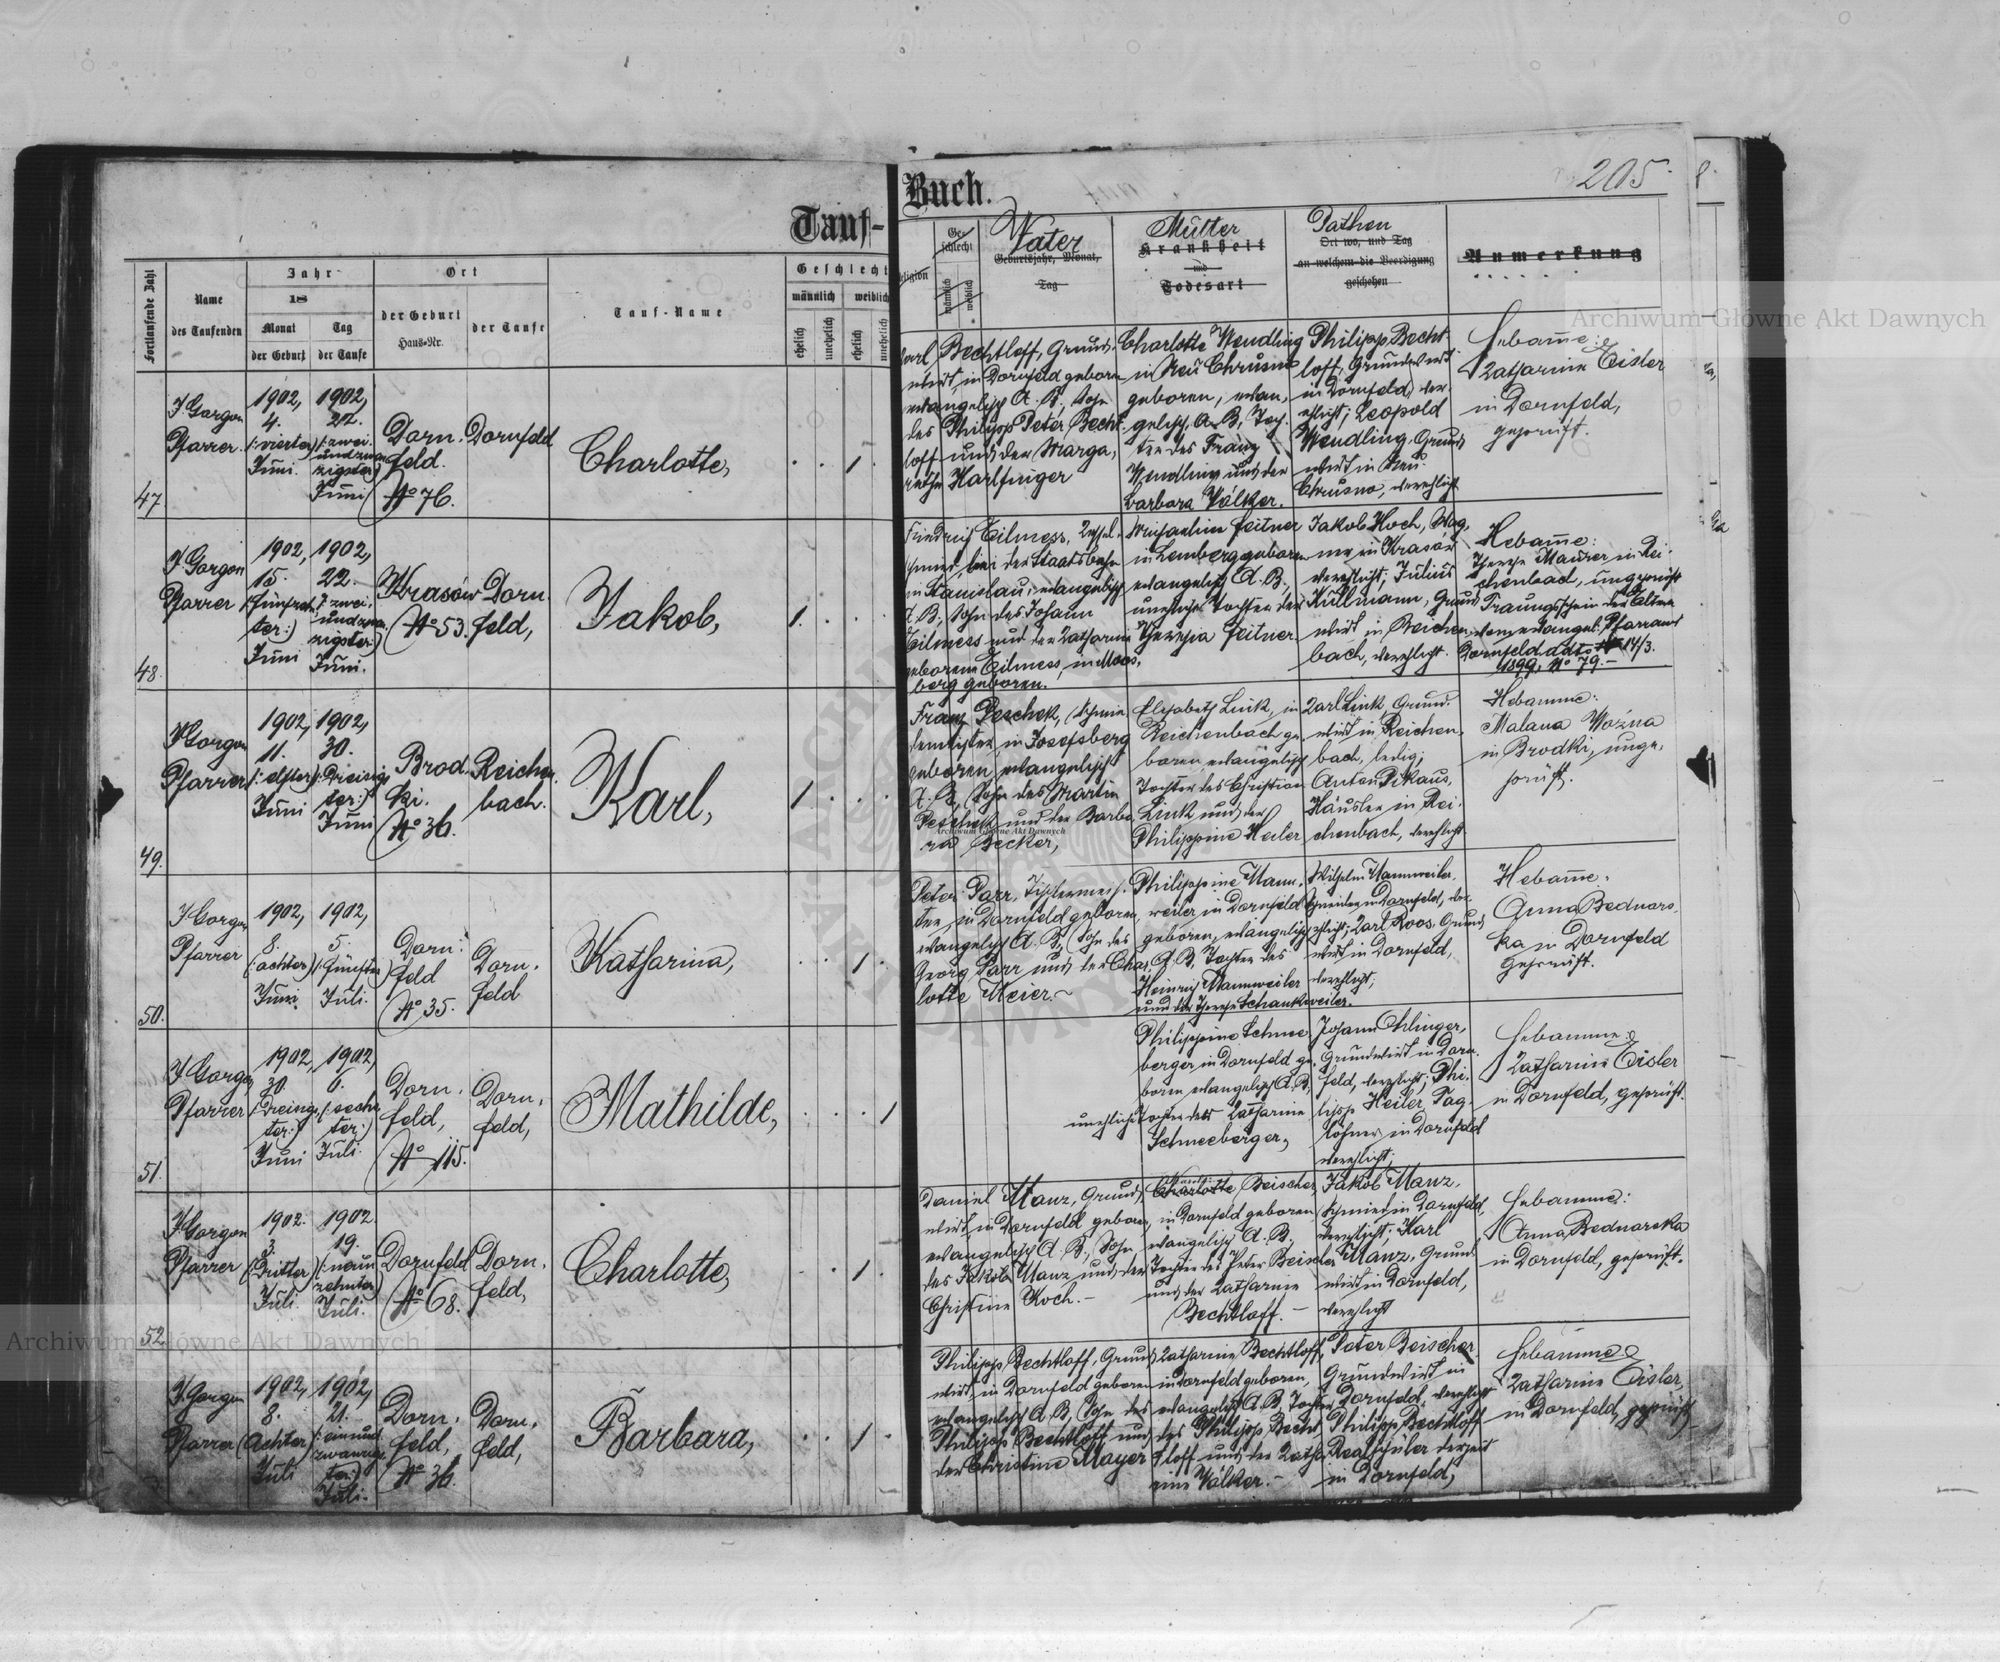 205.
Tauf-
Buch.
Fortlaufende Zahl
Name
des Taufenden
Jahr
18
Monat
der Geburt
Tag
der Taufe
Ort
der Geburt
Haus-Nr.
der Taufe
Tauf-Name
Geschlecht
männlich
weiblich
ehelich
unehelich
ehelich
unehelich
Religion
Geschlecht
männlich
weiblich
Vater
Geburtsjahr, Monat,
Tag
Mutter
Krankheit
und
Todesart
Pathen
Ort wo, und Tag
an welchem die Beerdigung
geschehen
Anmerkung
47
J Gorgon
Pfarrer
1902,
4.
(:vierter:)
Juni.
1902,
22.
(:zwei
undzwan
zigster:)
Juni
Dorn.
feld.
No 76.
Dornfeld
Charlotte,
1
Karl Bechtloff, Grund.
wirt, in Dornfeld geboren
evangelisch A. B., Sohn
des Philipp Peter Becht.
loff und der Marga,
rethe Harlfinger
Charlotte Wendling
in Neu Chrusno
geboren, evan,
gelisch A. B., Toch,
ter des Franz
Wendling und der
Barbara Völker.
Philipp Becht.
loff, Grundwirt
in Dornfeld, ver,
ehlicht; Leopold
Wendling, Grund
wirt in Neu
Chrusno, verehlicht
Hebamme:
Katharine Eisler
in Dornfeld,
geprüft.
48.
J Gorgon
Pfarrer
1902,
15.
(:fünfzehn
ter:)
Juni
1902,
22.
(:zwei,
undzwan.
zigster:)
Juni.
Krasów
No 53.
Dorn.
feld,
Jakob,
1.
Friedrich Eilmess,
bei der Staatsbahn
in Stanislau, evangelisch
A. B., Sohn des Johann
Eilmess und der Katharina
geborene Eilmess, in Moos,
berg geboren.
Feitner
in Lemberg geboren
evangelisch A. B.,
uneheliche Tochter der
Theresia Feitner.
Jakob Koch, Wag,
ner in Krasów
verehlicht; Julius
Kullmann, Grund
wirt in Reichen,
bach, verehlicht.
Hebamme:
Therese Maurer in Rei.
chenbach, ungeprüft
Trauungsschein der Eltern
vom evangel. Pfarramt
Dornfeld ddto 14/3.
1899, No 79.-
49.
J Gorgon
Pfarrer
1902,
11.
(:elfter:)
Juni
1902,
30.
(:Dreißig
ster:)
Juni
Brod.
ki.
No 36.
Reichen.
bach.
Karl,
1
Franz Peschek, Schmie
demeister in Josefsberg
geboren evangelisch
A. B., Sohn des Martin
Peschek und der Barba
ra Becker,
Elisabeth Link, in
Reichenbach ge.
boren evangelisch
Tochter des Christian
Link und der
Philippine Heiler
Karl Link, Grund.
wirt in Reichen,
bach, ledig;
Anton Pikaus,
Häusler in Rei.
chenbach, verehlicht
Hebamme:
Malana Woźna
in Brodki, unge,
prüft.
50.
J Gorgon
Pfarrer
1902,
8.
(achter)
Juni.
1902,
5.
(:fünfter)
Juli.
Dorn:
feld
No 35.
Dorn.
feld
Katharina,
1
Peter Parr, Tischlermeis.
ter, in Dornfeld geboren,
evangelisch A. B., Sohn des
Georg Parr und der Char,
lotte Meier.-
Philippine Mann,
weiler in Dornfeld
geboren, evangelisch
A. B., Tochter des
Heinrich Mannweiler
und der Therese Schankweiler.
Wilhelm Mannweiler,
Schneider in Dornfeld, ver.
ehlicht; Karl Roos, Grund
wirt in Dornfeld,
verehlicht;
Hebamme.
Anna Bednars.
ka in Dornfeld
geprüft.
51.
J Gorgon
Pfarrer
1902,
30.
(:Dreißig,
ster:)
Juni
1902,
6.
(:sechs
ter:)
Juli.
Dorn.
feld,
No 115.
Dorn,
feld,
Mathilde,
1
Philippine Schnee
berger in Dornfeld ge.
boren evangelisch A. B.,
uneheliche Tochter der Katharine
Schneeberger,
Johann Ohlinger,
Grundwirt in Dorn.
feld, verehlicht; Phi.
lipp Heiler, Tag.
löhner, in Dornfeld
verehlicht;
Hebamme:
Katharine Eisler
in Dornfeld, geprüft.
52.
J Gorgon
Pfarrer
1902.
3.
(:Dritter)
Juli.
1902
19.
(:neun
zehnter)
Juli.
Dornfeld
No 68.
Dorn.
feld,
Charlotte,
1
Daniel Manz, Grund,
wirt in Dornfeld geboren,
evangelisch A. B., Sohn
des Jakob Manz und der
Christine Koch.-
Charlotte Beischer,
in Dornfeld geboren
evangelisch A. B.,
Tochter des Peter Beischer
und der Katharine
Bechtloff.-
Jakob Manz,
Schmied in Dornfeld,
verehlicht; Karl
Manz, Grund
wirt in Dornfeld,
verehlicht
Hebamme:
Anna Bednarska
in Dornfeld, geprüft.
J Gorgon
Pfarrer
1902,
8.
(Achter)
Juli
1902,
21.
(:einund
zwanzigs,
ter:)
Juli.
Dorn.
feld,
No 36.
Dorn,
feld,
Barbara,
1
Philipp Bechtloff, Grund
wirt, in Dornfeld geboren
evangelisch A. B., Sohn des
Philipp Bechtloff und
der Christine Mayer
Katharine Bechtloff,
in Dornfeld geboren,
evangelisch A. B., Tochter
des Philipp Becht,
loff und der Katha,
rine Völker.-
Peter Beischer,
Grundwirt in
Dornfeld, verehlicht
Philipp Bechtloff
Realschüler derzeit
in Dornfeld,
Hebamme
Katharine Eisler,
in Dornfeld, geprüft
Archiwum Główne Akt Dawnych
Archiwum Główne Akt Dawnych
Archiwum Główne Akt Dawnych